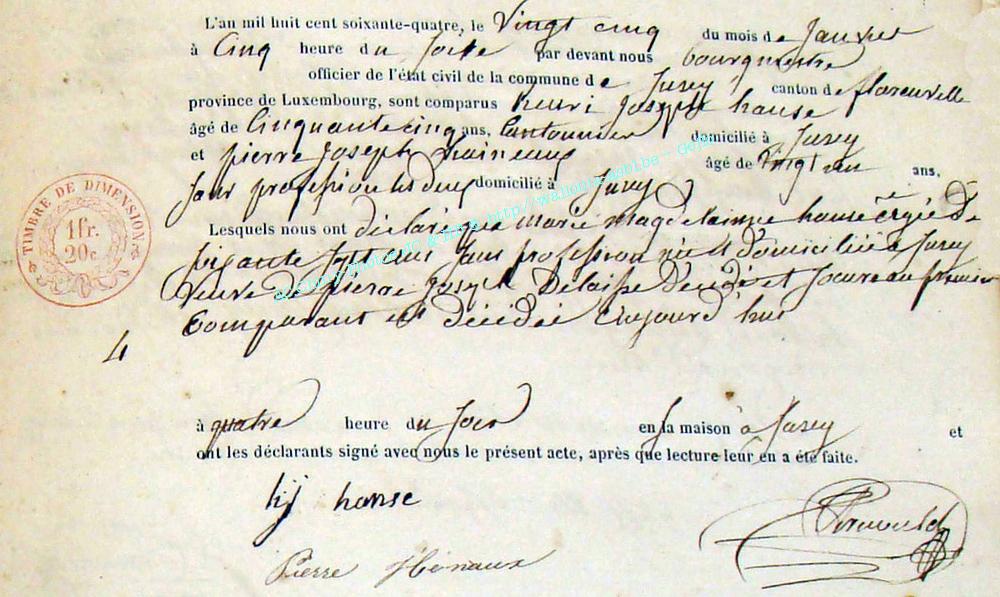 L'an mil huit cent soixante-quatre, le Vingt cinq du mois de Janvier
à Cinq heure du soire par devant nous bourgmestre
officier de l'état civil de la commune de Jusey canton de florenville
province de Luxembourg, sont comparus henri josephe hanse
âgé de Cinquante cinq ans, Cantonnier domicilié à Jusey
et pierre joseph âgé de Vingt un ans,
sans profession les deux domicilié à Jusey
Lesquels nous ont déclaré que marie magdelainne hanse agée de
soixante sept ans sans profession née et domiciliée a Jusey
Veuve de pierre joseph Delaisse décédé et soeure au premier
Comparant est décédée aujourd'hui
TIMBRE DE DIMENSION
1 fr.
20 c.
4
à quatre heure du soir en sa maison à Jusey et
ont les déclarants signé avec nous le présent acte, après que lecture leur en a été faite.
hj hanse
Pierre Hénaux